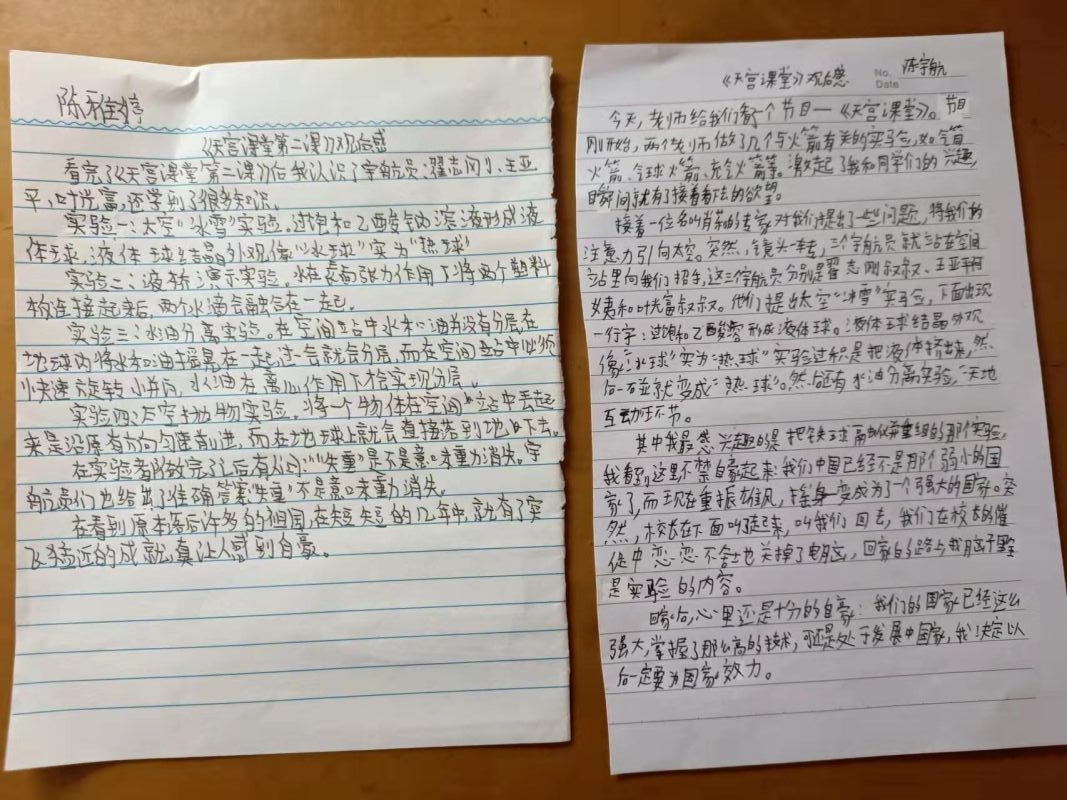 陈雅婷
《天宫课堂第二课》观后感
看完了《天宫课堂第二课》后我认识了宇航员:翟志刚、王亚
平、叶光富,还学到了很多知识。
实验一:太空"冰雪"实验。过饱和乙酸钠溶液形成液
体球,液体球结晶外观像"冰球"实为"热球"
实验二、液桥演示实验。水在表面张力作用下将两个塑料
板连接起来后,两个水滴会融合在一起。
实验三:水油分离实验。在空间站中水和油并没有分层,在
地球内将水和油摇晃在一起,过一会就会分层,而在空间站中必须
快速旋转小瓶后,水油在离心作用下才会实现分层。
实验四:太空抛物实验。将一个物体在空间站中丢起
来是沿原有方向匀速前进,而在地球上就会直接落到地下去。
在实验都做完了之后有人问:"失重"是不是意味重力消失。宇
航员们也给出了准确答案"失重"不是意味重力消失。
在看到原本落后许多的祖国,在短短的几年中,就有了突
飞猛进的成就,真让人感到自豪。
《天宫课堂》观后感
No. 陈宇航
Date
今天,老师给我们看一个节目—《天宫课堂》。节目
刚开始,两个老师做了几个与火箭有关的实验,如气、
火箭、气球火箭、充气火箭等。激起了我和同学们的兴趣,
瞬间就有了接着看下去的欲望。
接着一位名叫肖和的专家对我们提出了一些问题,将我们的
注意力引向太空。突然,镜头一转,三个宇航员就站在空间
站里向我们招手,这三个宇航员分别是翟志刚叔叔、王亚平阿
姨和叶光富叔叔。他们提出太空"冰雪"实验,下面出现
一行字:过饱和乙酸形成液体球。液体球结晶外观
像"冰球"实为"热球"实验过程是把液体挤出来,然
后一碰就变成"热球"。然后还有水油分离实验,天地
互动环节。
其中我最感兴趣的是把铁球重组的那个实验,
我看到这里不禁自豪起来:我们中国已经不是那个弱小的国
家了,而现在重振雄风,摇身一变成为了一个强大的国家。突
然,校长在下面叫起来,叫我们回去,我们在校长的催
促中恋恋不舍地关掉了电脑,回家的路上我脑子里
是实验的内容。
回家后,心里还是十分的自豪:我们的国家已经这么
强大,掌握了那么高的技术,可还是处于发展中国家,我决定以
后一定要为国家效力。